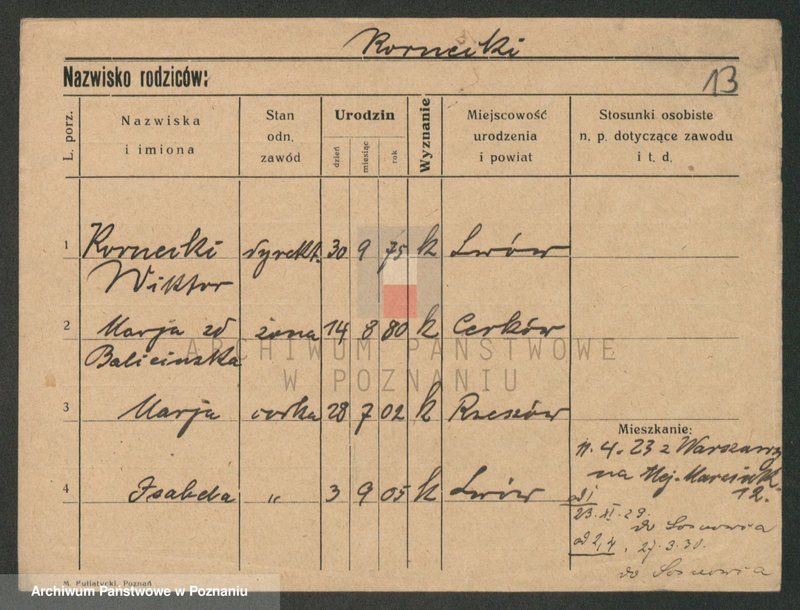 Kornecki
Nazwisko rodziców:
13
L. porz.
Nazwiska
i imiona
Stan
odn.
zawód
Urodzin
dzień
miesiąc
rok
Wyznanie
Miejscowość
urodzenia
i powiat
Stosunki osobiste
n. p. dotyczące zawodu
i t. d.
1 Kornecki dyrekt. 30 9 75 k Lwów
Wiktor
2 Marja zd żona 14 8 80 k Cerków
Balicinska
ARCHIWUM PAŃSTWOWE
W POZNANIU
3 Marja corka 28 7 02 k Rzeszów
Mieszkanie:
11.4.23 z Warszawy
na
12.
4 Isabela " 3 9 05 k Lwów
od 1
23.XI.29.
do Sosnowca
od 2,4. 27.3.30.
do Sosnowca
M. Putiatycki, Poznań
Archiwum Państwowe w Poznaniu